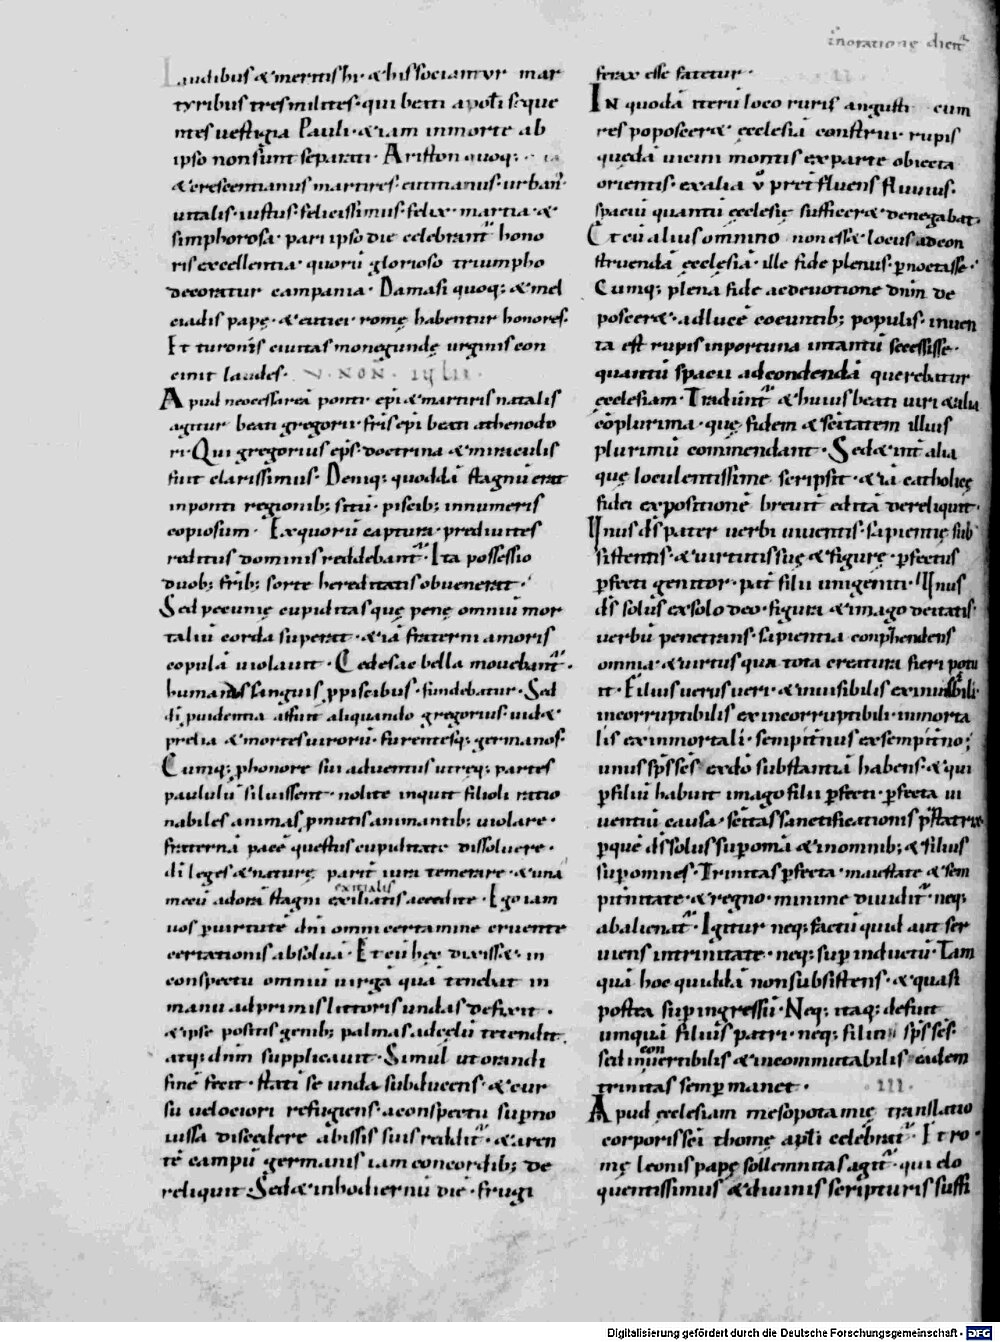 in oratione dicit̅
Laudibus & meritis hi· & his sociantur mar
tyribus tres milites· qui beati apost̅li seque
ntes uestigia Pauli· & iam in morte ab
ipso non sunt separati· Ariston quoq;
& crescentianus martires· eutitianus· urban᾽·
uitalis· iustus· felicissimus· felix· martia· &
simphorosa· pari ipso die celebrant̅ hono
ris excellentia· quorū glorioso triumpho
decoratur campania· Damasi quoq; & mel
ciadis papę· & eutici romę habentur honores·
Et turonis ciuitas monegundę uirginis con
cinit laudes· V· NON· IULII·
Apud necessareā ponti ep̅i & martiris natalis
agitur beati gregorii· fr̅is ep̅i beati athenodo
ri· Qui gregorius ep̅s· doctrina & miraculis
fuit clarissimus· Deniq; quoddā stagnū erat
in ponti regionib; sitū· piscib; innumeris
copiosum· Ex quorū captura· prediuites
reditus dominis reddebant̅· Ita possessio
duob; fr̅ib; sorte hereditatis obuenerat·
Sed pecunię cupiditas quę penę omniū mor
taliū corda superat· & iā fraterni amoris
copulā violauit· Cedes ac bella mouebant̅·
humanus sanguis p̱piscibus· fundebatur· Sed
di̅ p̱uidentia affuit aliquando gregorius· uid&
prelia & mortes uirorū· furentesq; germanos·
Cumq; p̱honore sui aduentus utręq; partes
paululū siluissent· nolite inquit filioli ratio
nabiles animas p̱mutis animantib; uiolare·
fraternā pacē questus cupiditate dissoluere·
di̅ leges & naturę parit̅ iura temerare· & unā
exitialis
mecū adora stagni exiliatis accedite· Ego iam
uos p̱uirtutē dn̅i omni certamine cruente
certationis absoluā· Et cū hęc dixisset· in
conspectu omniū uirgā quā tendeat in
manu ad primis littoris undas defixit·
& ipse positis genib; palmas ad cęlū tetendit
atq; dn̅m supplicauit· Simul ut orandi
finē fecit· stati se unda subducens· & cur
su uelociori refugiens· a conspectu sup̱no
iussa discedere abissis suis reddit̅· & aren
tē campū germanis iam concordib; de
reliquit· Sed & in hodiernū diē· frugi
ferax esse fatetur· II·
IN quodā iterū loco ruris angusti cum
res poposcer& ęcclesiā construi· rupis
quędā uicini montis ex parte obiecta
orientis· ex alia v̊ pret̅fluens fluuius·
spaciū quantū ęcclesię sufficer& denegabat·
Et cū alius omnino non ess& locus ad con
struendā ęcclesiā· ille fide plenus· p̱noctasse·
Cumq; plena fide ac deuotione dn̅m de
poscer&· ad lucē coeuntib; populis· inuen
ta est rupis inportuna in tantū secessisse·
quantū spacii ad condendā querebatur
ęcclesiam· Tradunt̅ & huius beati uiri & alia
cōplurima· quę fidem & sc̅itatem illius
plurimū commendant· Sed & int̅ alia
quę loculentissime scripsit· & iā catholicę
fidei expositionē breuit̅ editā dereliquit·
Unus d̅s pater uerbi uiuentis· sapientię sub
sistentis· & uirtutis suę & figurę· p̱fectus
p̱fecti genitor· pat̅ filii unigeniti· Unus
d̅s solus ex solo deo· figura & imago deitatis·
uerbū penetrans· sapientia conp̱hendens
omnia· & uirtus qua tota creatura fieri potu
it· Filius uerus ueri· & inuisibilis ex inuisibili·
incorruptibilis ex incorruptibili· inmorta
lis ex inmortali· sempit̅nus ex sempit̅no;
unus sp̅s sc̅s ex dō substantiā habens· & qui
p̱ filiū habuit imago filii p̱fecti· p̱fecta ui
uentiū causa· sc̅itas sanctificationis p̱statrix
p̱que d̅s solus sup̱ omā & in omnib; & filius
sup̱ omnes· Trinitas p̱fecta· maiestate & sem
pit̅nitate· & regno· minime diuidit̅· neq;
abalienat̅· Igitur neq; factū quid aut ser
uiens in trinitate· neq; sup̱inductū· Tam
quā hoc quiddā non subsistens· & quasi
postea sup̱ingressū· Neq; itaq; defuit
umquā filius patri· neq; filiu sp̅s sc̅s·
con
sed inuertibilis & incommutabilis eadem
trinitas semp̱ manet· III·
Apud ecclesiam mesopotamię translatio
corporis sc̅i thomę apl̅i celebrat̅· Et ro
mę leonis papę sollemnitas agit̅· qui elo
quentissimus & diuinis scripturis suffi
Digitalisierung gefördert durch die Deutsche Forschungsgemeinschaft - DFG